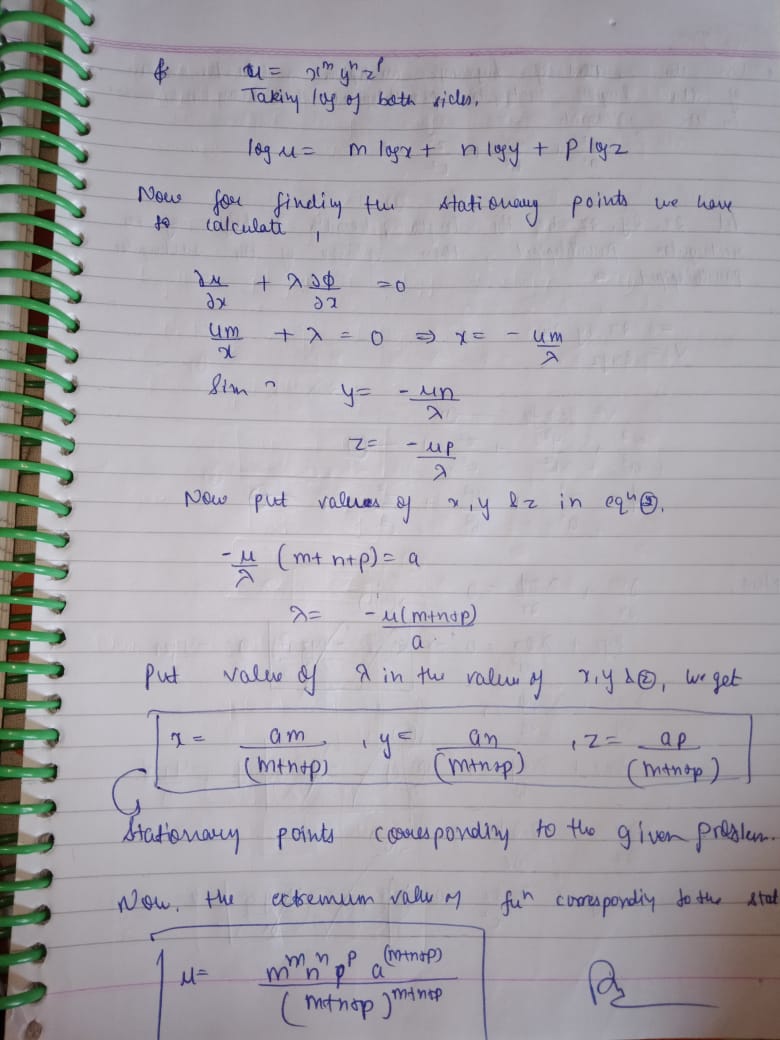 u = x^m y^n z^p
Taking log of both sides.
log u = m log x + n log y + p log z
Now for finding the stationary points we have
to calculate,
∂u/∂x + λ ∂φ/∂x = 0
um/x + λ = 0 ⇒ x = - um/λ
Sim y = -un/λ
z = -up/λ
Now put values of x, y & z in eqn ②.
-u/λ (m+n+p) = a
λ = -u(m+n+p)/a
Put value of λ in the value of x, y & z, we get
x = am/(m+n+p), y = an/(m+n+p), z = ap/(m+n+p)
Stationary points corresponding to the given problem.
Now, the extremum value of fun correspondig to the stat
u = m^m n^n p^p a^(m+n+p) / (m+n+p)^m+n+p